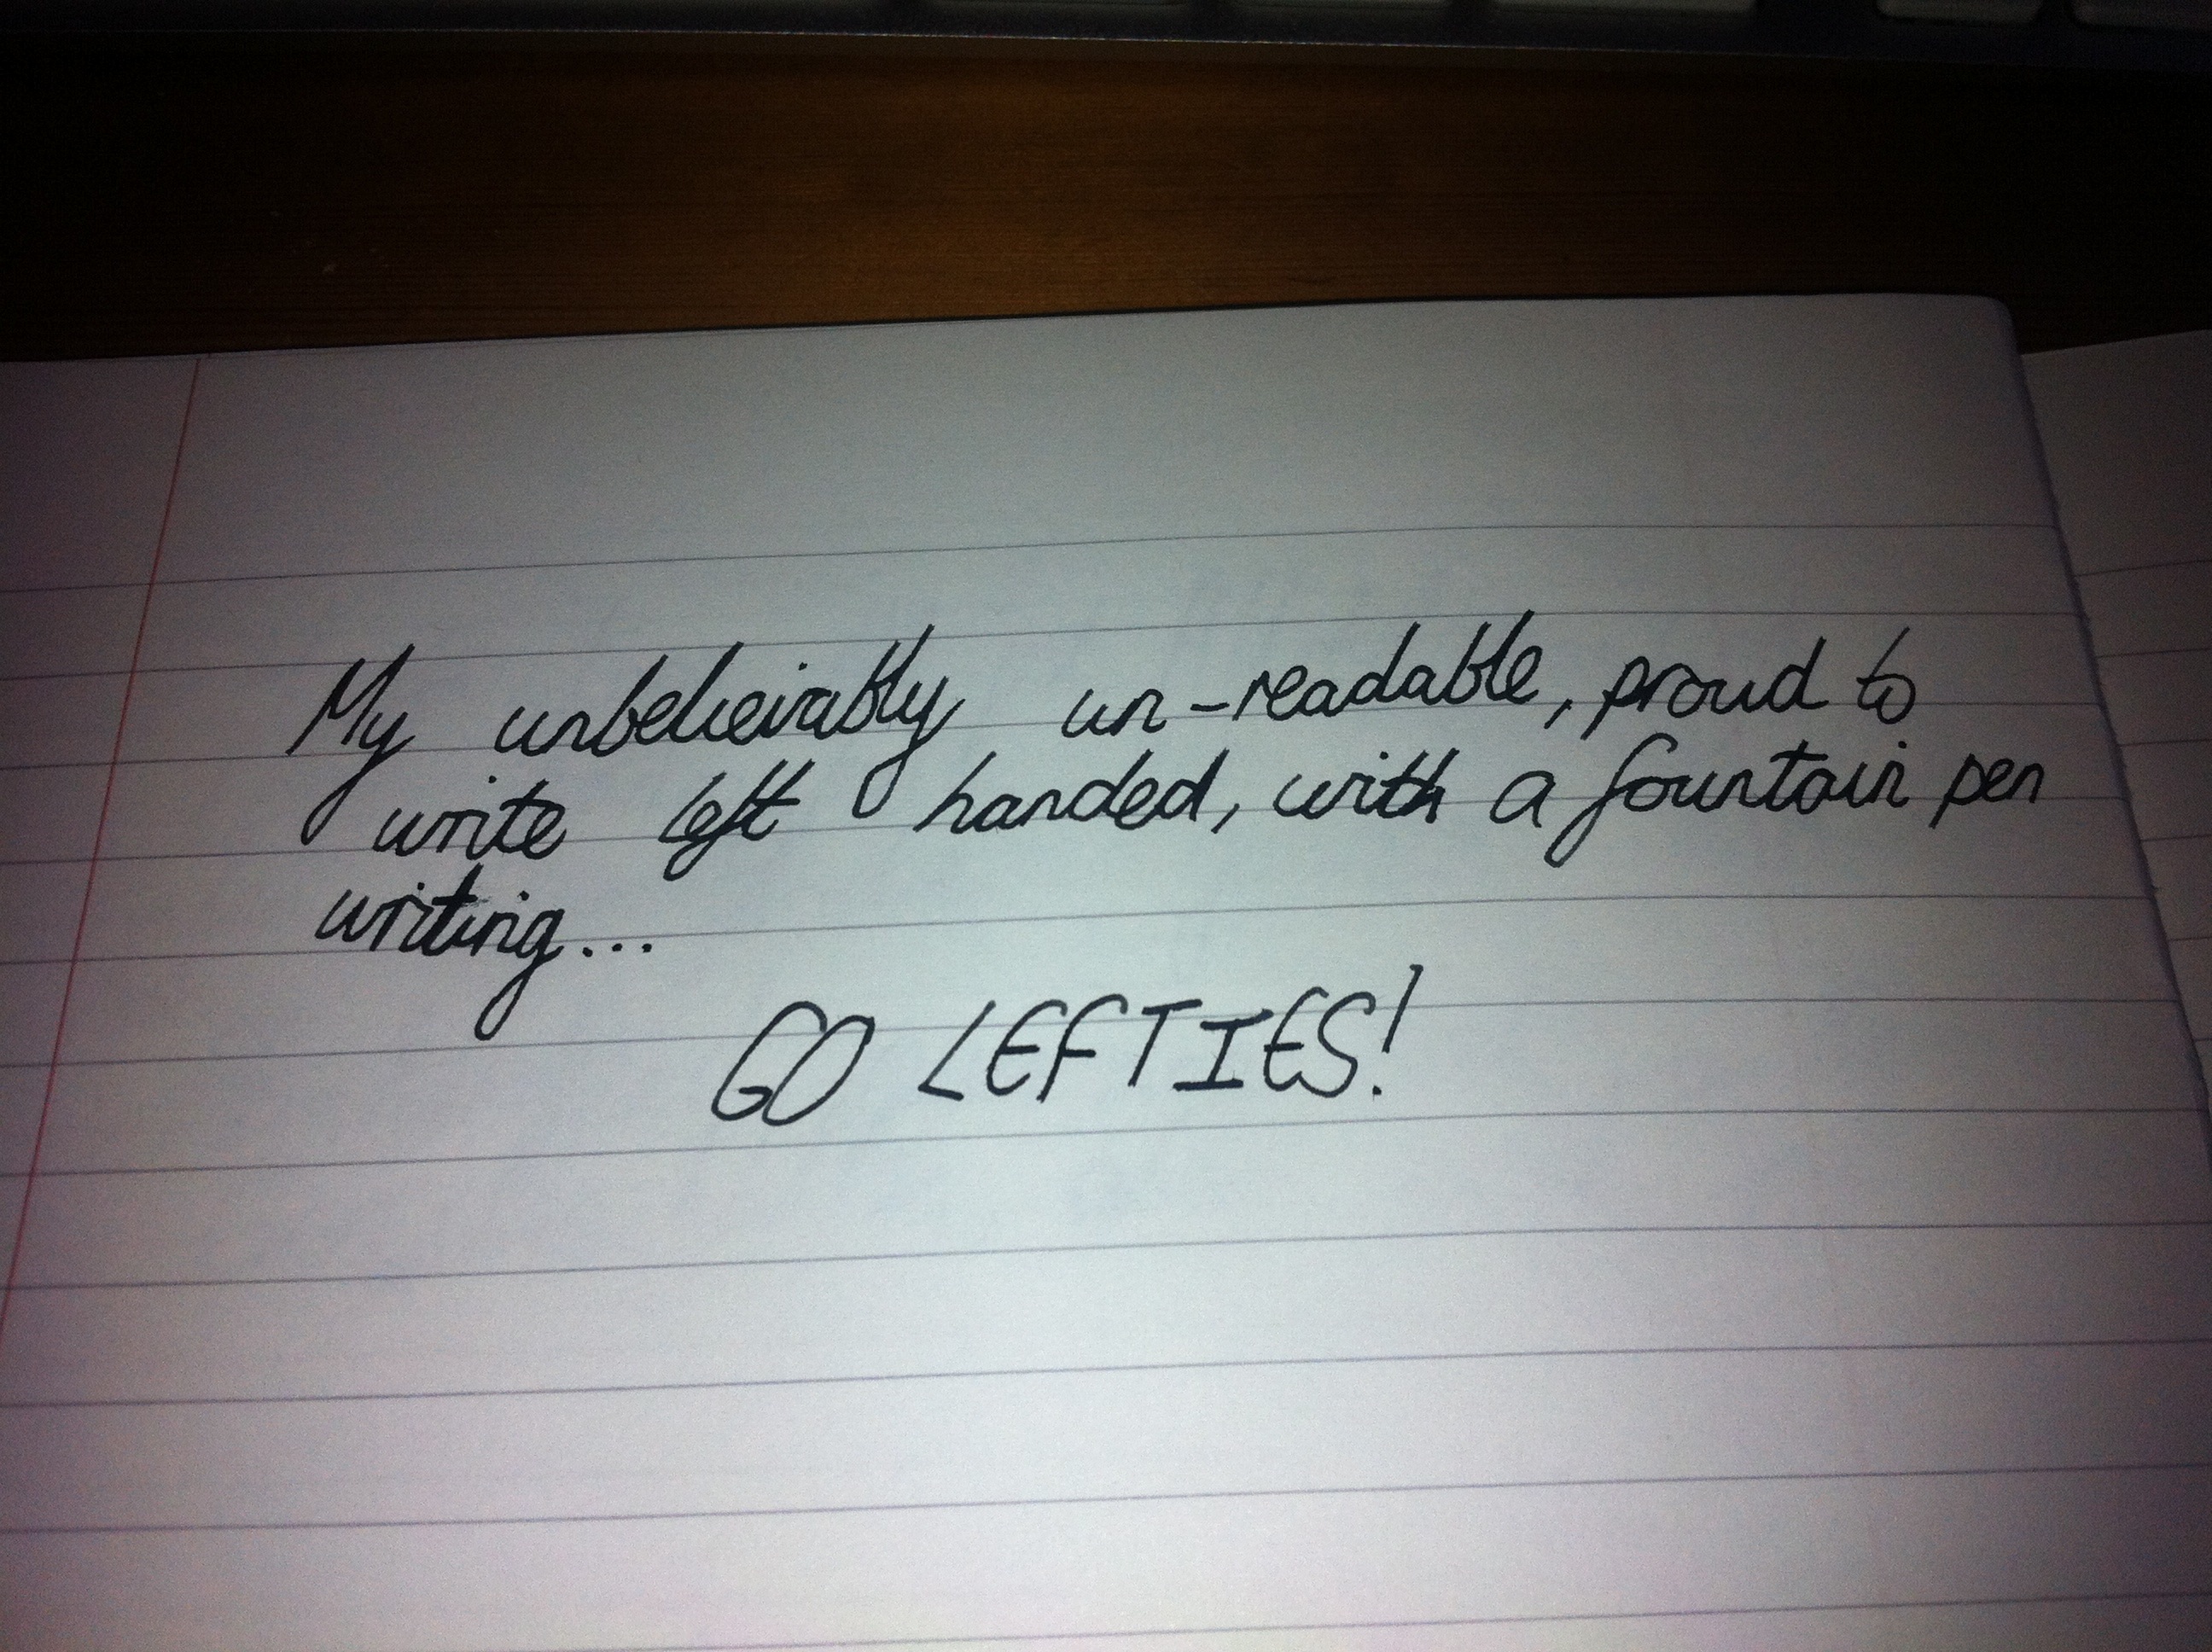 My unbeleivably un-readable, proud to
write left handed, with a fountain pen
writing...
GO LEFTIES!